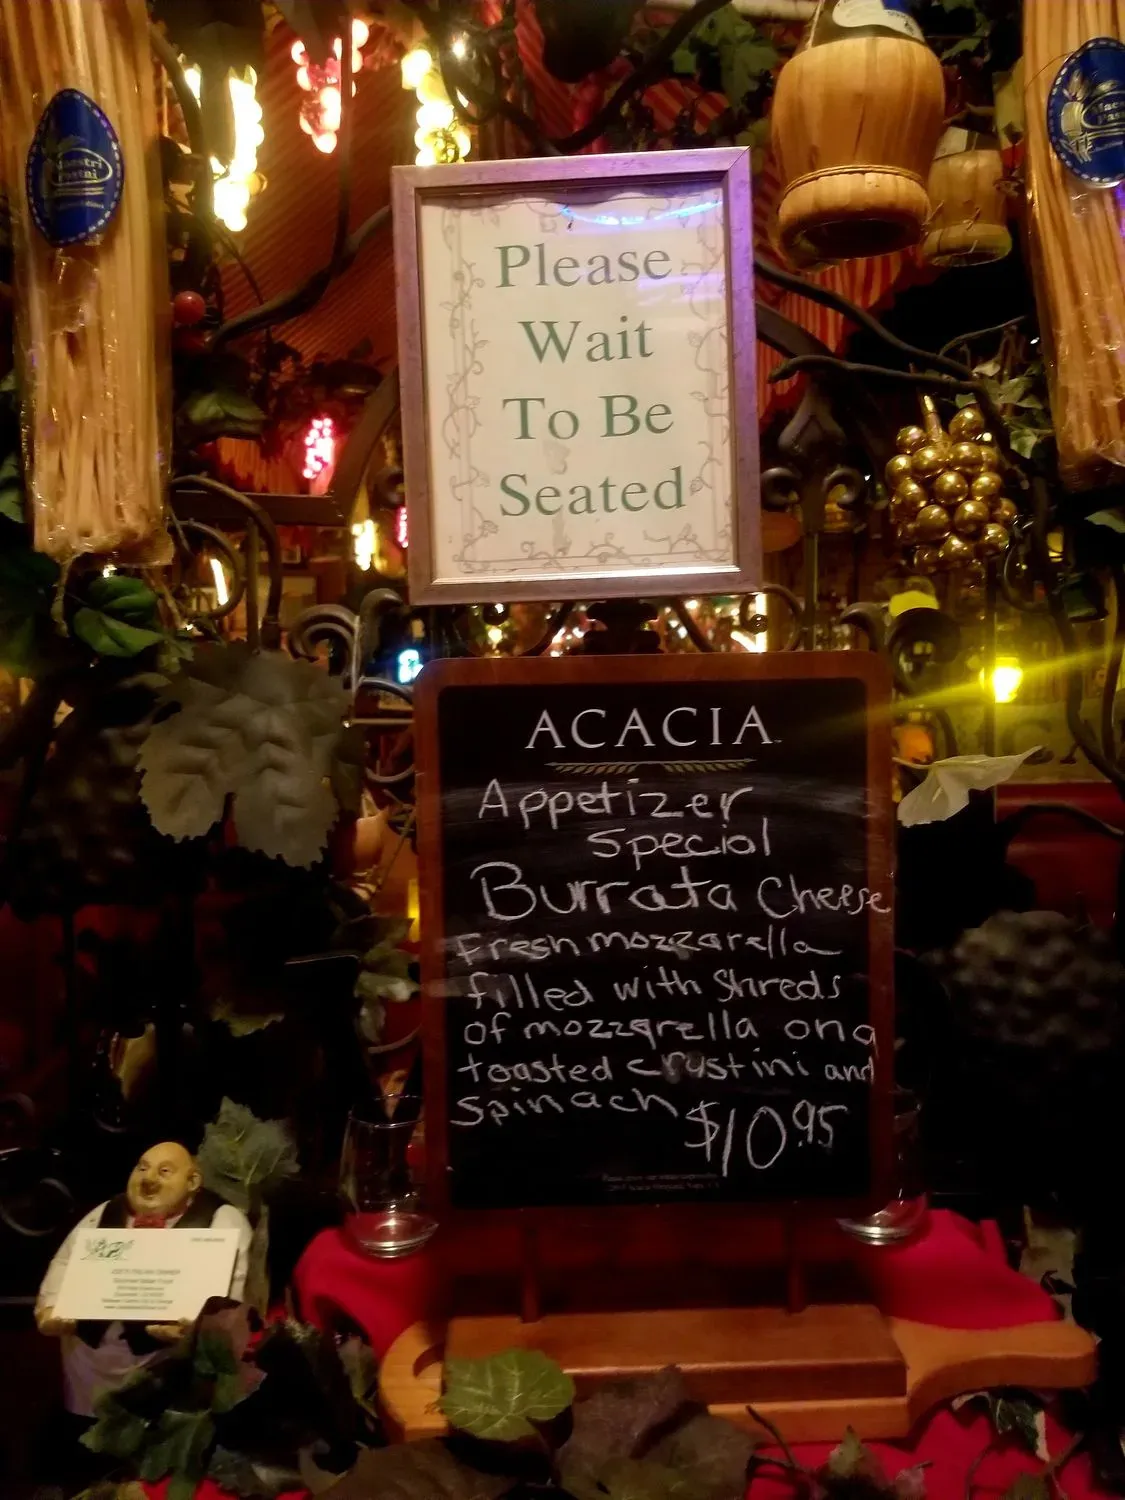 Maestri
Pastai
Please
Wait
To Be
Seated
ACACIA
Appetizer
Special
Burrata Cheese
Fresh mozzarella
filled with Shreds
of mozzarella on a
toasted crustini and
Spinach $10.95